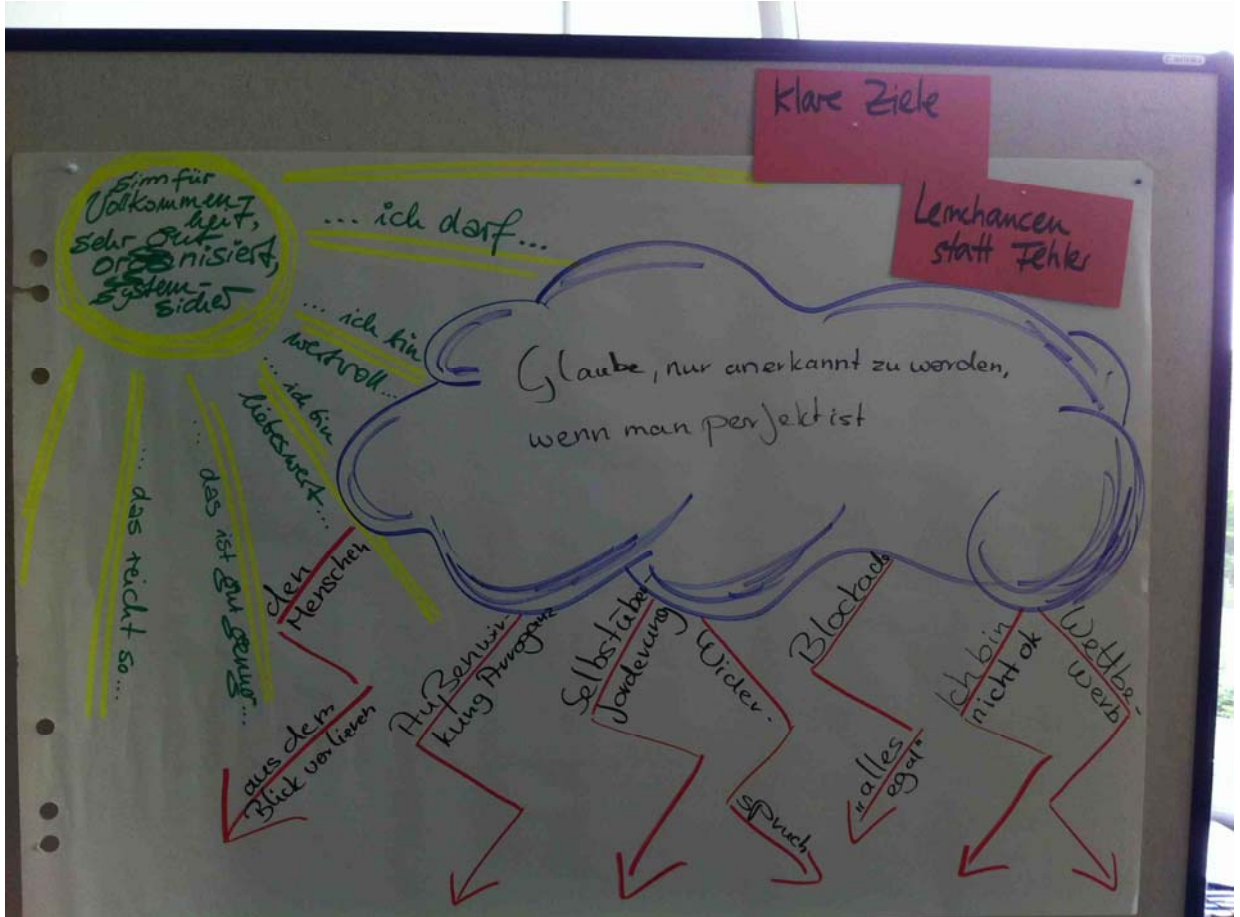 klare Ziele
Lernchancen
statt Fehler
Sinn für
Vollkommen-
heit,
sehr gut
organisiert,
system-
sicher
... ich darf...
... ich bin
wertvoll...
... ich bin
liebeswert...
... das ist gut genug...
... das reicht so...
Glaube, nur anerkannt zu werden,
wenn man perfekt ist
den
Menschen
aus dem
Blick verlieren
Außenwir-
kung Arroganz
Selbstüber-
forderung
Wider-
spruch
Blockade
"alles
egal"
Ich bin
nicht ok
Wettbe-
werb